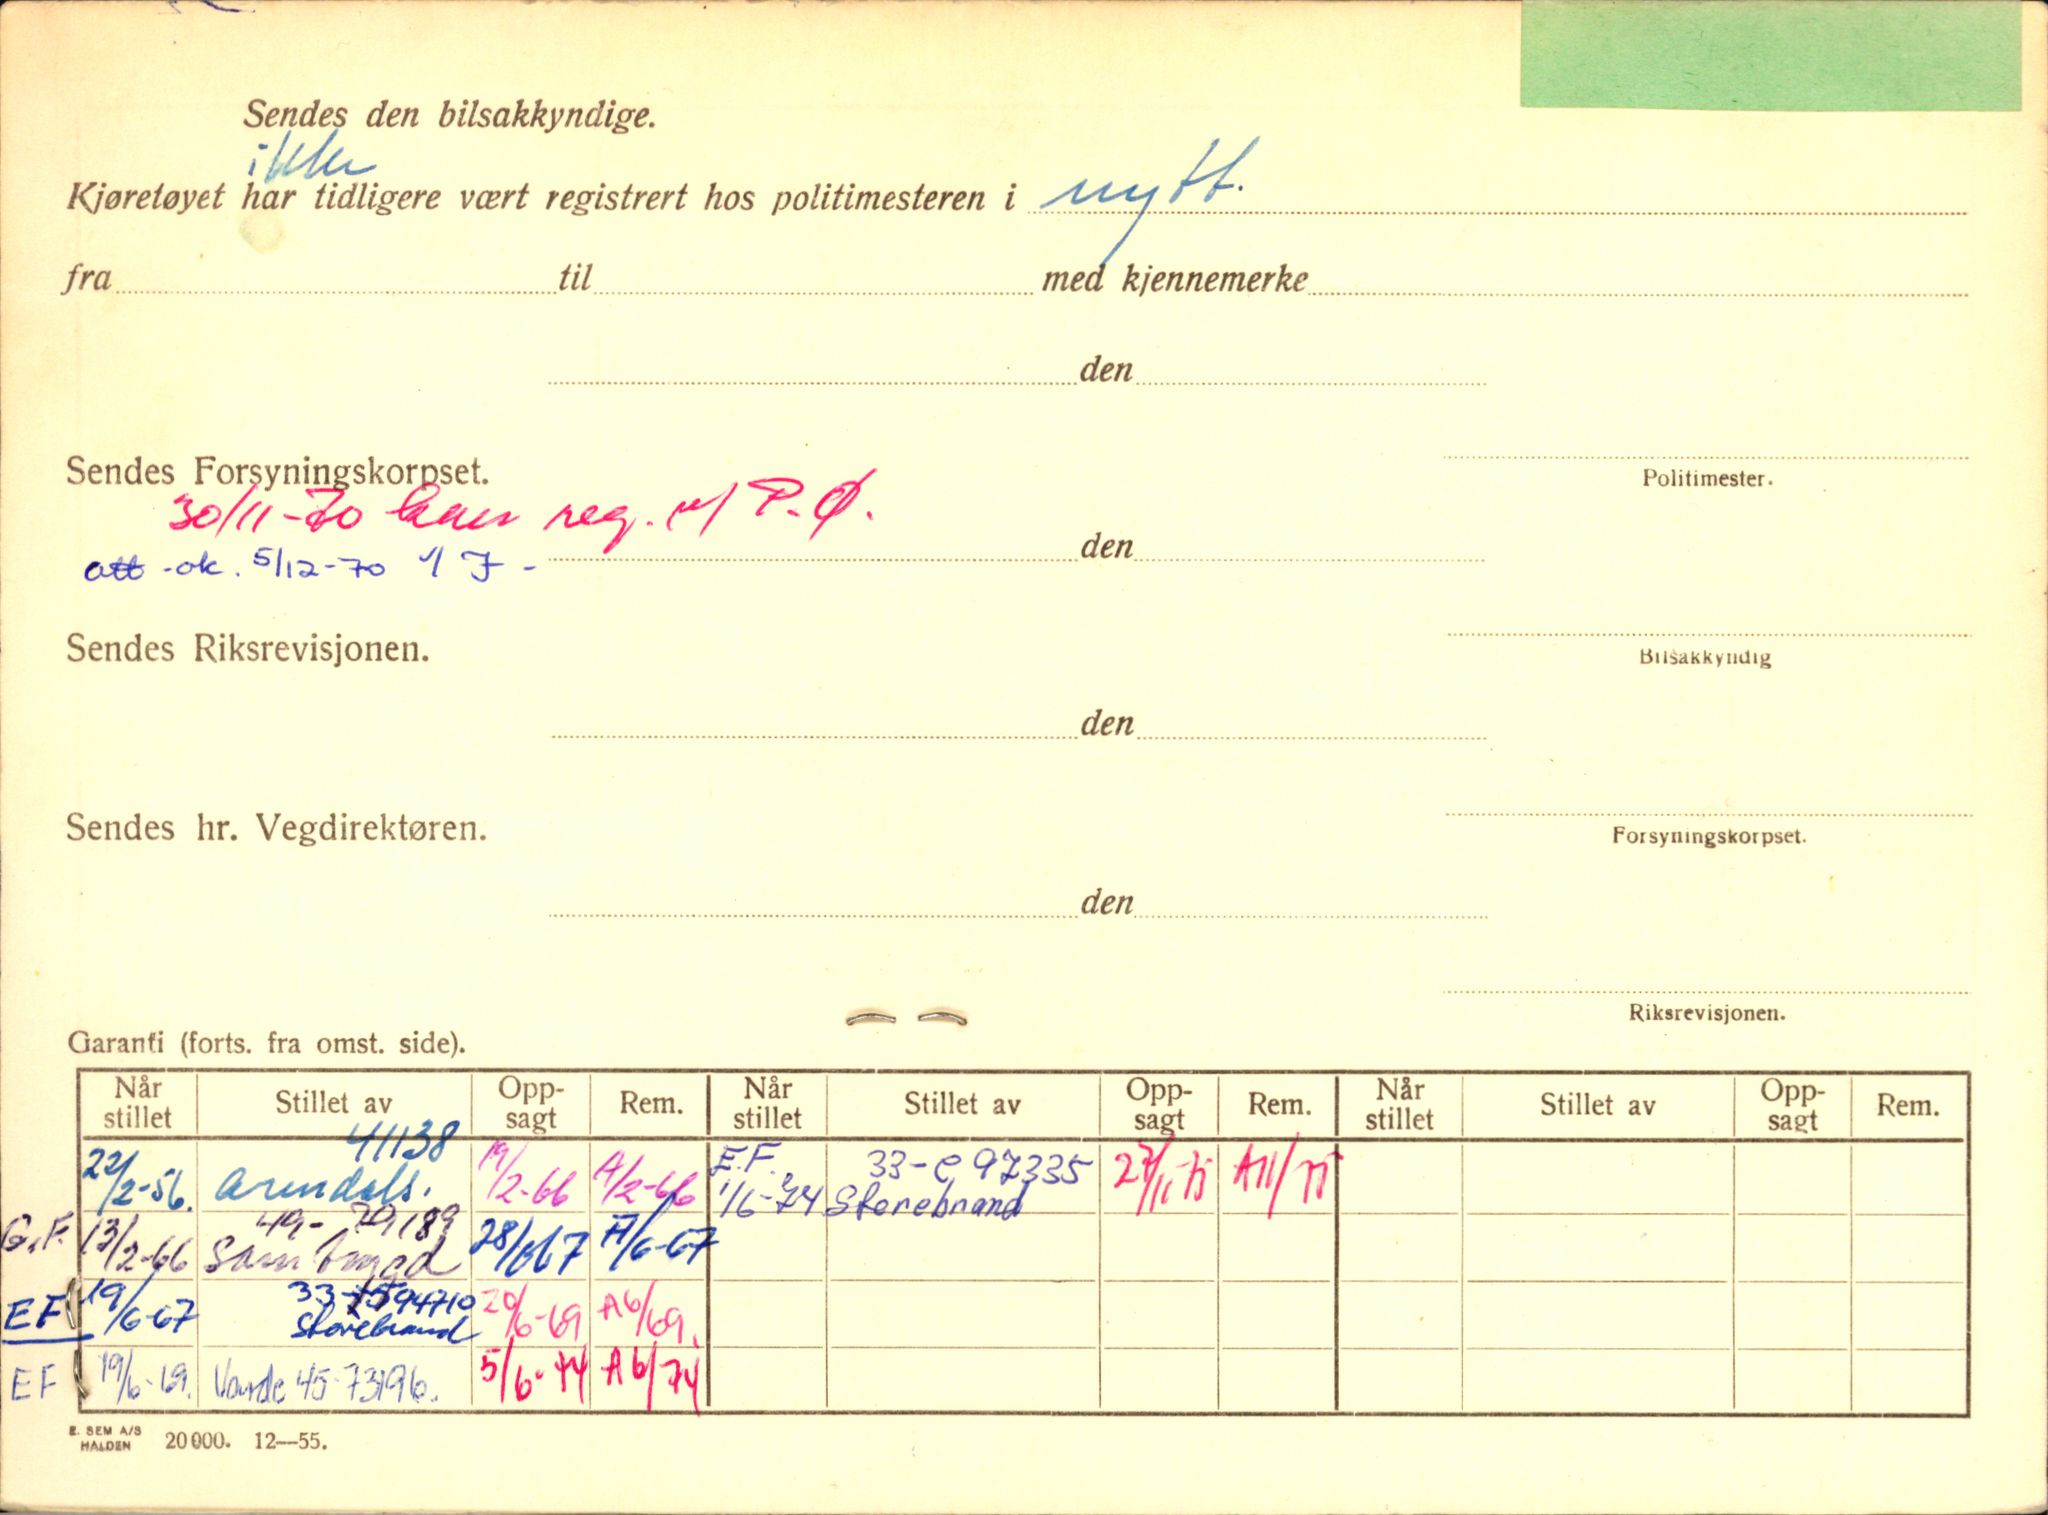 Sendes den bilsakkyndige.
ikke
Kjøretøyet har tidligere vært registrert hos politimesteren i nytt.
fra til med kjennemerke
den
Politimester.
Sendes Forsyningskorpset.
30/11-70 reg. v/ P.Ø.
att -ok. 5/12-70 v/ J -
den
Bilsakkyndig
Sendes Riksrevisjonen.
den
Forsyningskorpset.
Sendes hr. Vegdirektøren.
den
Riksrevisjonen.
Garanti (forts. fra omst. side).
Når stillet Stillet av Opp-sagt Rem. Når stillet Stillet av Opp-sagt Rem. Når stillet Stillet av Opp-sagt Rem.
22/2-56. 41138 Arendals. 19/2-66 A/2-66 E.F. 1/6-74 33-e 97335 Storebrand 27/11-75 A11/75
G.F. 13/2-66 49-79189 Sambygd 28/6 67 A/6-67
EF 19/6-67 94710 Storebrand 20/6-69 A6/69.
EF 19/6-69. Varde 45-73196. 5/6-74 A6/74
E. SEM A/S
HALDEN 20000. 12—55.